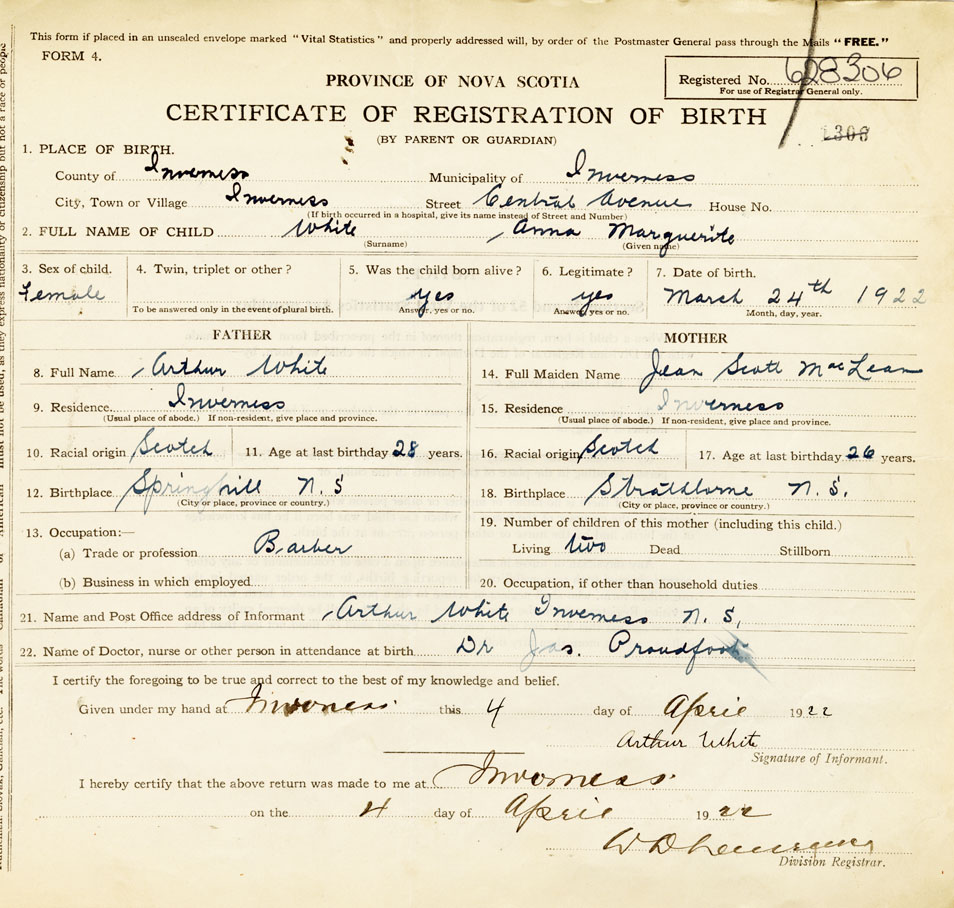 This form if placed in an unsealed envelope marked "Vital Statistics" and properly addressed will, by order of the Postmaster General pass through the Mails "FREE."
FORM 4.
PROVINCE OF NOVA SCOTIA
Registered No. 628306
For use of Registrar General only.
CERTIFICATE OF REGISTRATION OF BIRTH
(BY PARENT OR GUARDIAN)
1306
1. PLACE OF BIRTH.
County of Inverness Municipality of Inverness
City, Town or Village Inverness Street Central Avenue House No.
(If birth occurred in a hospital, give its name instead of Street and Number)
2. FULL NAME OF CHILD White Anna Marguerite
(Surname) (Given name)
3. Sex of child. 4. Twin, triplet or other? 5. Was the child born alive? 6. Legitimate? 7. Date of birth.
Female yes yes March 24th 1922
To be answered only in the event of plural birth. Answer, yes or no. Answer yes or no. Month, day, year.
FATHER MOTHER
8. Full Name Arthur White 14. Full Maiden Name Jean Scott MacLean
9. Residence Inverness 15. Residence Inverness
(Usual place of abode.) If non-resident, give place and province. (Usual place of abode.) If non-resident, give place and province.
10. Racial origin Scotch 11. Age at last birthday 28 years. 16. Racial origin Scotch 17. Age at last birthday 26 years.
12. Birthplace Springhill N.S 18. Birthplace Strathlorne N.S.
(City or place, province or country.) (City or place, province or country.)
13. Occupation:— 19. Number of children of this mother (including this child.)
(a) Trade or profession Barber Living two Dead Stillborn
(b) Business in which employed 20. Occupation, if other than household duties
21. Name and Post Office address of Informant Arthur White Inverness N.S.
22. Name of Doctor, nurse or other person in attendance at birth Dr Jas. Proudfoot
I certify the foregoing to be true and correct to the best of my knowledge and belief.
Given under my hand at Inverness this 4 day of April 1922
Arthur White
Signature of Informant.
I hereby certify that the above return was made to me at Inverness
on the 4 day of April 1922
W D
Division Registrar.